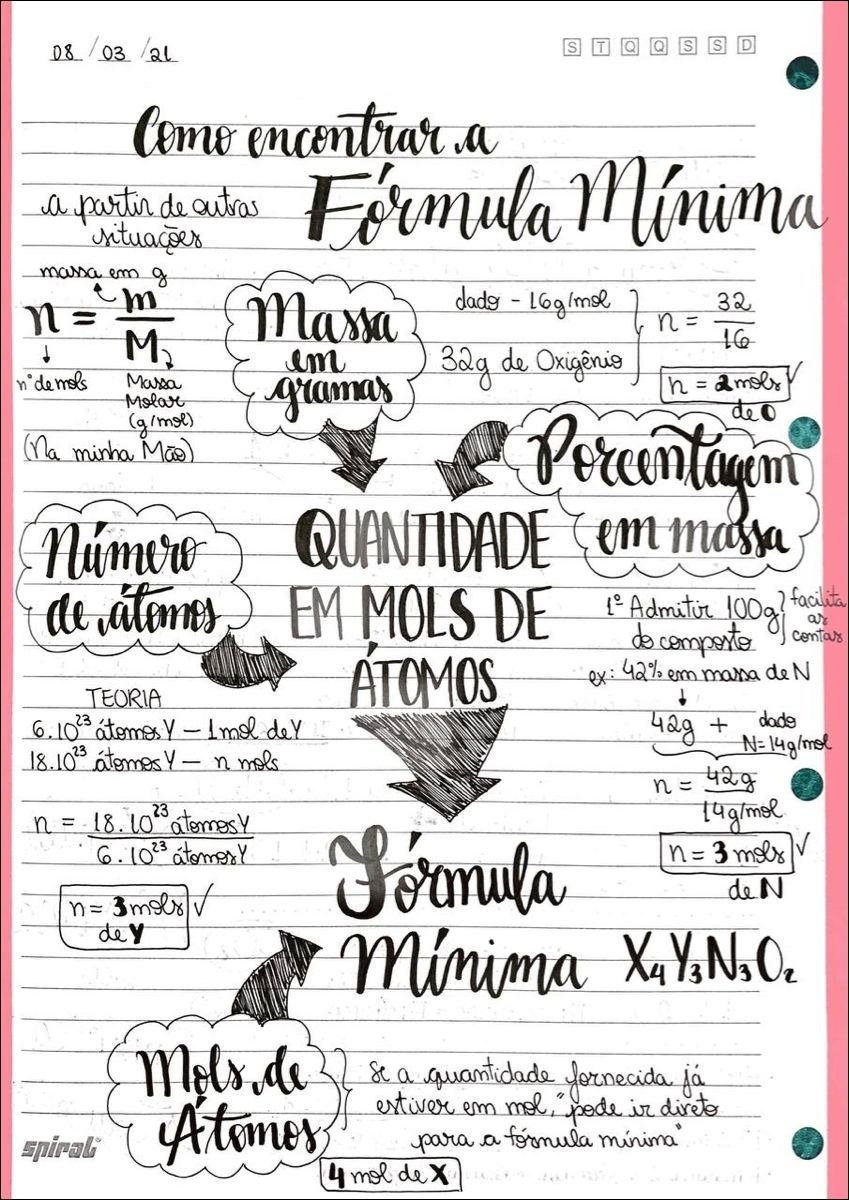 08 / 03 / 21
S T Q Q S S D
Como encontrar a
Fórmula Mínima
a partir de outras
situações
massa em g
n = m / M
n° de mols
Massa
Molar
(g/mol)
(Na minha Mão)
Massa
em
gramas
dado - 16g/mol
32g de Oxigênio
n = 32 / 16
n = 2 mols ✓
de O
Porcentagem
em massa
Número
de átomos
QUANTIDADE
EM MOLS DE
ÁTOMOS
1º Admitir 100g
do composto
facilita
as
contas
ex: 42% em massa de N
42g + dado
N=14g/mol
n = 42g / 14g/mol
n = 3 mols ✓
de N
TEORIA
6.10²³ átomos Y – 1 mol de Y
18.10²³ átomos Y – n mols
n = 18.10²³ átomos Y / 6.10²³ átomos Y
n = 3 mols ✓
de Y
Fórmula
Mínima X₄Y₃N₃O₂
Mols de
Átomos
Se a quantidade fornecida já
estiver em mol, "pode ir direto
para a fórmula mínima"
4 mol de X
spiral